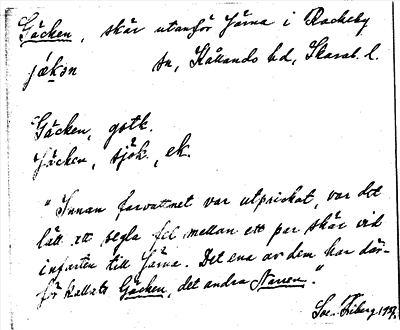 Gäcken, skär utanför Järna i Rackeby
jä́kən sn, Kållands hd, Skarab. l.
Gäcken, gstk.
Jäcken, sjök., ek.
"Innan farvattnet var utprickat, var det
lätt att segla fel mellan ett par skär vid
infarten till Järna. Det ena av dem har där-
för kallats Gäcken, det andra Narren."